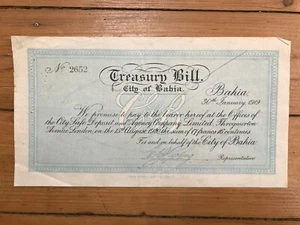 No 2652
Treasury Bill.
City of Bahia.
Bahia,
30th January, 1919
We promise to pay to the bearer hereof at the Offices of
the City Safe Deposit and Agency Company Limited, Throgmorton
Avenue London, on the 15th August 19 the sum of 17 francs 16 centimes
For and on behalf of the City of Bahia
Representative